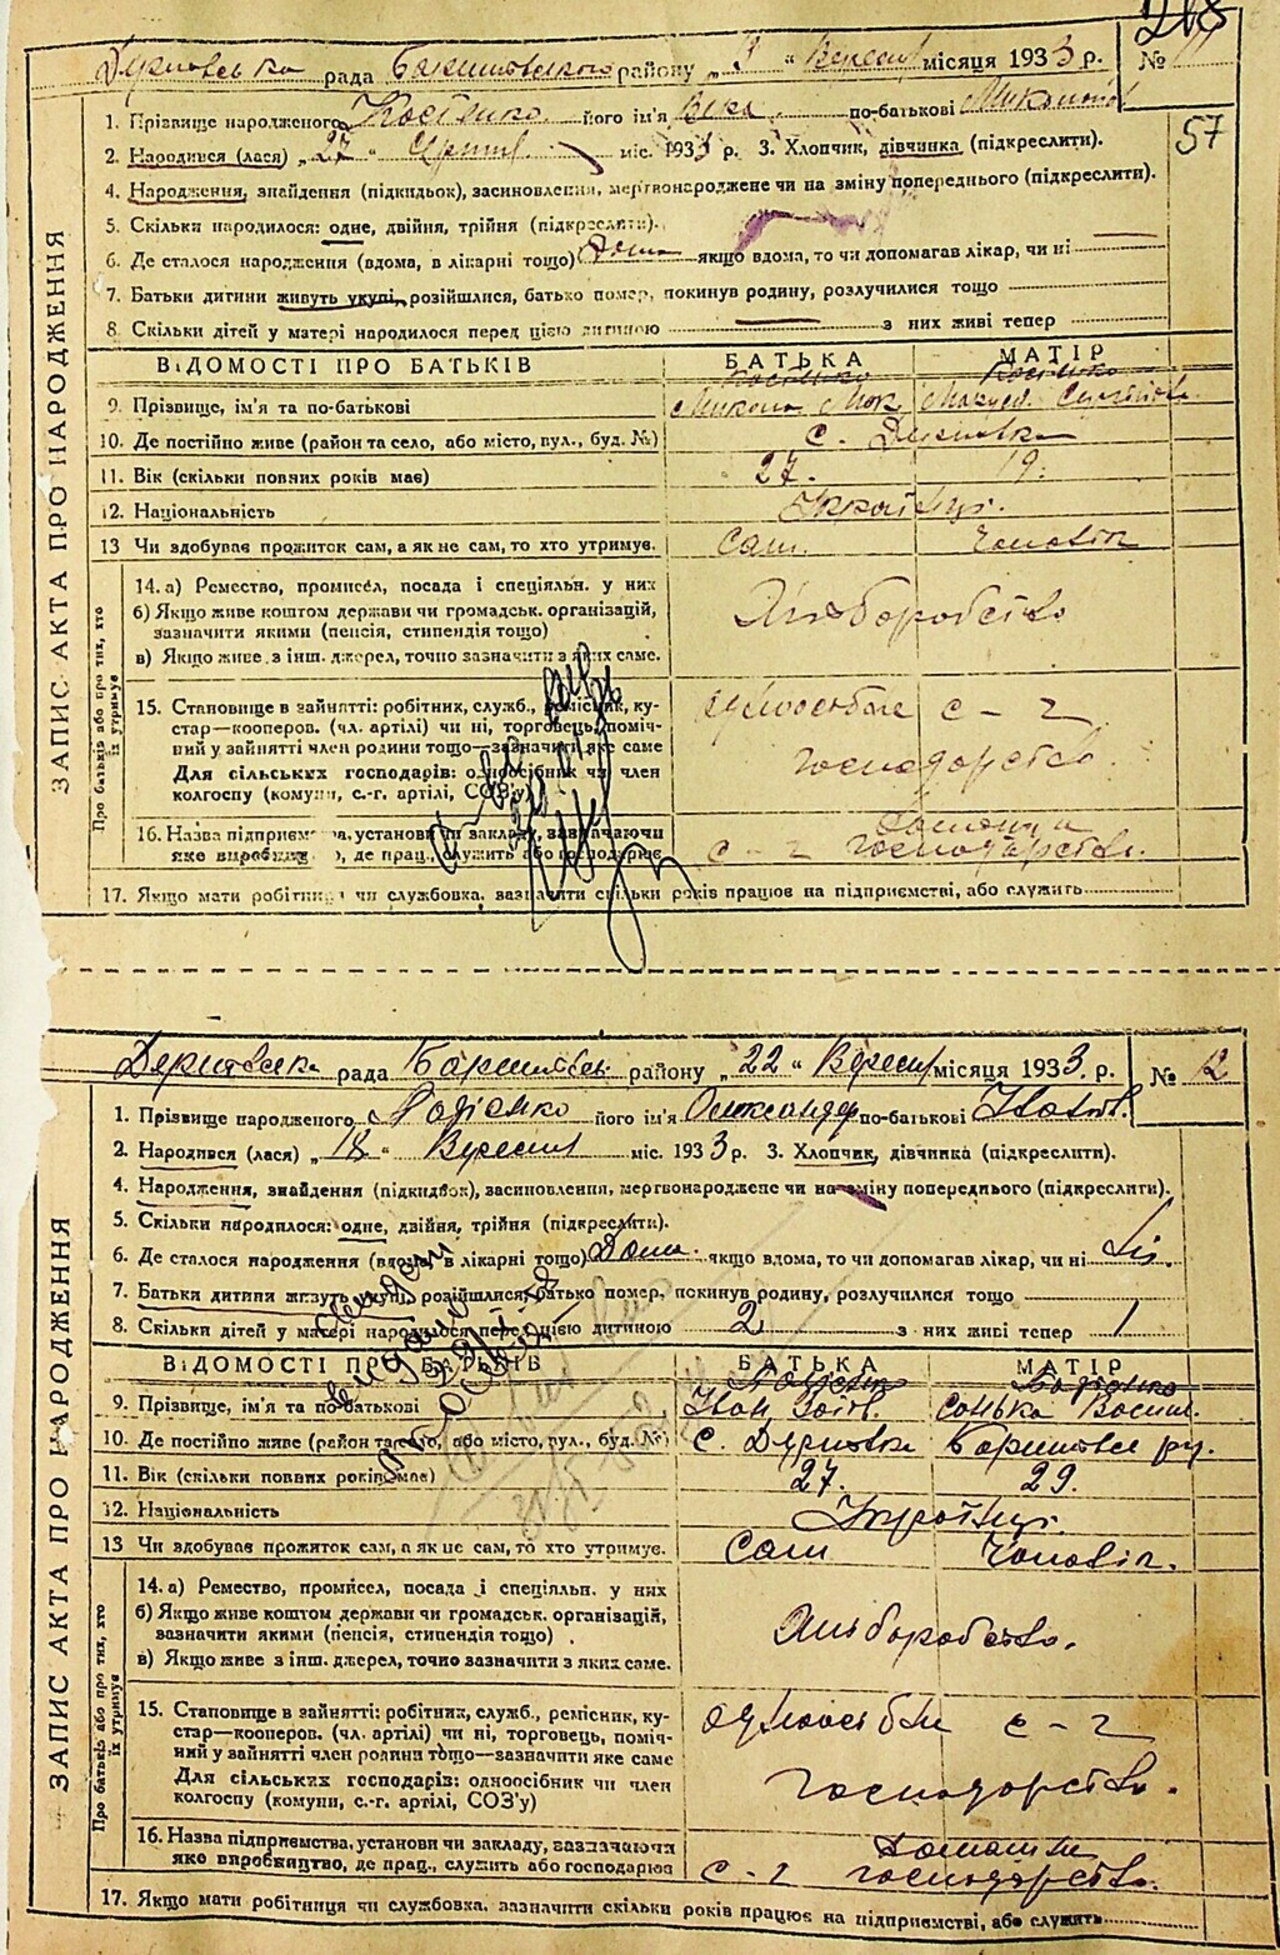 218
Дернівська рада Баришівського району „3" Вересня місяця 1933 р. № 11
57
ЗАПИС АКТА ПРО НАРОДЖЕННЯ
1. Прізвище народженого Костенко його ім'я Віка по-батькові
2. Народився (лася) „27" міс. 1933 р. 3. Хлопчик, дівчинка (підкреслити).
4. Народження, знайдення (підкидьок), засиновлення, мертвонароджене чи на зміну попереднього (підкреслити).
5. Скільки народилося: одне, двійня, трійня (підкреслити).
6. Де сталося народження (вдома, в лікарні тощо) Дома якщо вдома, то чи допомагав лікар, чи ні —
7. Батьки дитини живуть укупі, розійшлися, батько помер, покинув родину, розлучилися тощо
8. Скільки дітей у матері народилося перед цією дитиною — з них живі тепер
ВІДОМОСТІ ПРО БАТЬКІВ БАТЬКА МАТІР
Костенко Костенко
9. Прізвище, ім'я та по-батькові Микола
10. Де постійно живе (район та село, або місто, вул., буд. №) с. Дернівка
11. Вік (скільки повних років має) 27. 19.
12. Національність Українці.
13 Чи здобуває прожиток сам, а як не сам, то хто утримує. Сам. Чоловік
Про батьків або про тих, хто їх утримує
14. а) Ремество, промисел, посада і спеціяльн. у них
б) Якщо живе коштом держави чи громадськ. організацій,
зазначити якими (пенсія, стипендія тощо) Хліборобство
в) Якщо живе з інш. джерел, точно зазначити з яких саме.
15. Становище в зайнятті: робітник, служб., ремісник, ку- одноосібне с-г
стар—кооперов. (чл. артілі) чи ні, торговець, поміч-
ний у зайнятті член родини тощо—зазначити яке саме господарство.
Для сільських господарів: одноосібник чи член
колгоспу (комуни, с.-г. артілі, СОЗ'у)
16. Назва підприємства, установи чи закладу, зазначаючи
яке виробництво, де прац., служить або господарює с-г господарство.
17. Якщо мати робітниця чи службовка, зазначити скільки років працює на підприємстві, або служить
Дернівська рада Баришівськ. району „22" Вересня місяця 1933. р. № 12
ЗАПИС АКТА ПРО НАРОДЖЕННЯ
1. Прізвище народженого його ім'я Олександр по-батькові Іванов.
2. Народився (лася) „18" Вересня міс. 1933 р. 3. Хлопчик, дівчинка (підкреслити).
4. Народження, знайдення (підкидьок), засиновлення, мертвонароджене чи на зміну попереднього (підкреслити).
5. Скільки народилося: одне, двійня, трійня (підкреслити).
6. Де сталося народження (вдома, в лікарні тощо) Дома. якщо вдома, то чи допомагав лікар, чи ні Ні.
7. Батьки дитини живуть укупі, розійшлися, батько помер, покинув родину, розлучилися тощо
8. Скільки дітей у матері народилося перед цією дитиною 2 з них живі тепер 1
ВІДОМОСТІ ПРО БАТЬКІВ БАТЬКА МАТІР
9. Прізвище, ім'я та по-батькові Іван Сонька Восил.
10. Де постійно живе (район та село, або місто, вул., буд. №) с. Дернівка Баришівськ. ру.
11. Вік (скільки повних років має) 27. 29.
12. Національність Українці.
13 Чи здобуває прожиток сам, а як не сам, то хто утримує. Сам Чоловік.
Про батьків або про тих, хто їх утримує
14. а) Ремество, промисел, посада і спеціяльн. у них
б) Якщо живе коштом держави чи громадськ. організацій, Хліборобство.
зазначити якими (пенсія, стипендія тощо)
в) Якщо живе з інш. джерел, точно зазначити з яких саме.
15. Становище в зайнятті: робітник, служб., ремісник, ку- одноосібне с-г
стар—кооперов. (чл. артілі) чи ні, торговець, поміч-
ний у зайнятті член родини тощо—зазначити яке саме
Для сільських господарів: одноосібник чи член господарство.
колгоспу (комуни, с.-г. артілі, СОЗ'у)
16. Назва підприємства, установи чи закладу, зазначаючи Домашнє
яке виробництво, де прац., служить або господарює с-г господарство.
17. Якщо мати робітниця чи службовка, зазначити скільки років працює на підприємстві, або служить